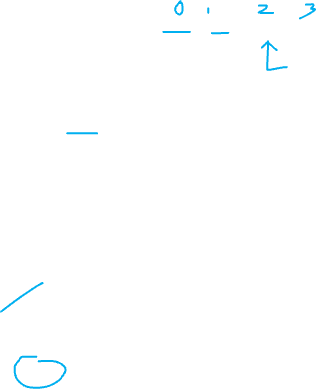 0 1 2 3